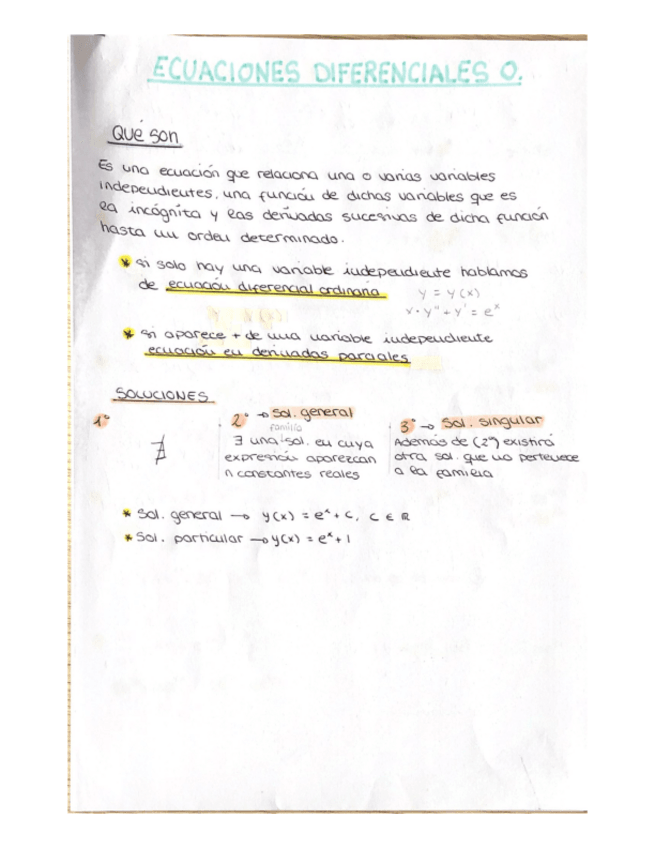 ECUACIONES DIFERENCIALES O.
Qué son
Es una ecuación que relaciona una o varias variables
independientes, una función de dichas variables que es
la incógnita y las derivadas sucesivas de dicha función
hasta un orden determinado.
* si solo hay una variable independiente hablamos
de ecuación diferencial ordinaria
y = y(x)
x·y'' + y' = eˣ
* si aparece + de una variable independiente
ecuación en derivadas parciales
SOLUCIONES
1º
∄
2º → Sol. general
familia
∃ una sol. en cuya
expresión aparezcan
n constantes reales
3º → Sol. singular
Además de (2º) existirá
otra sol. que no pertenece
a la familia
* Sol. general → y(x) = eˣ + c, c ∈ ℝ
* Sol. particular → y(x) = eˣ + 1